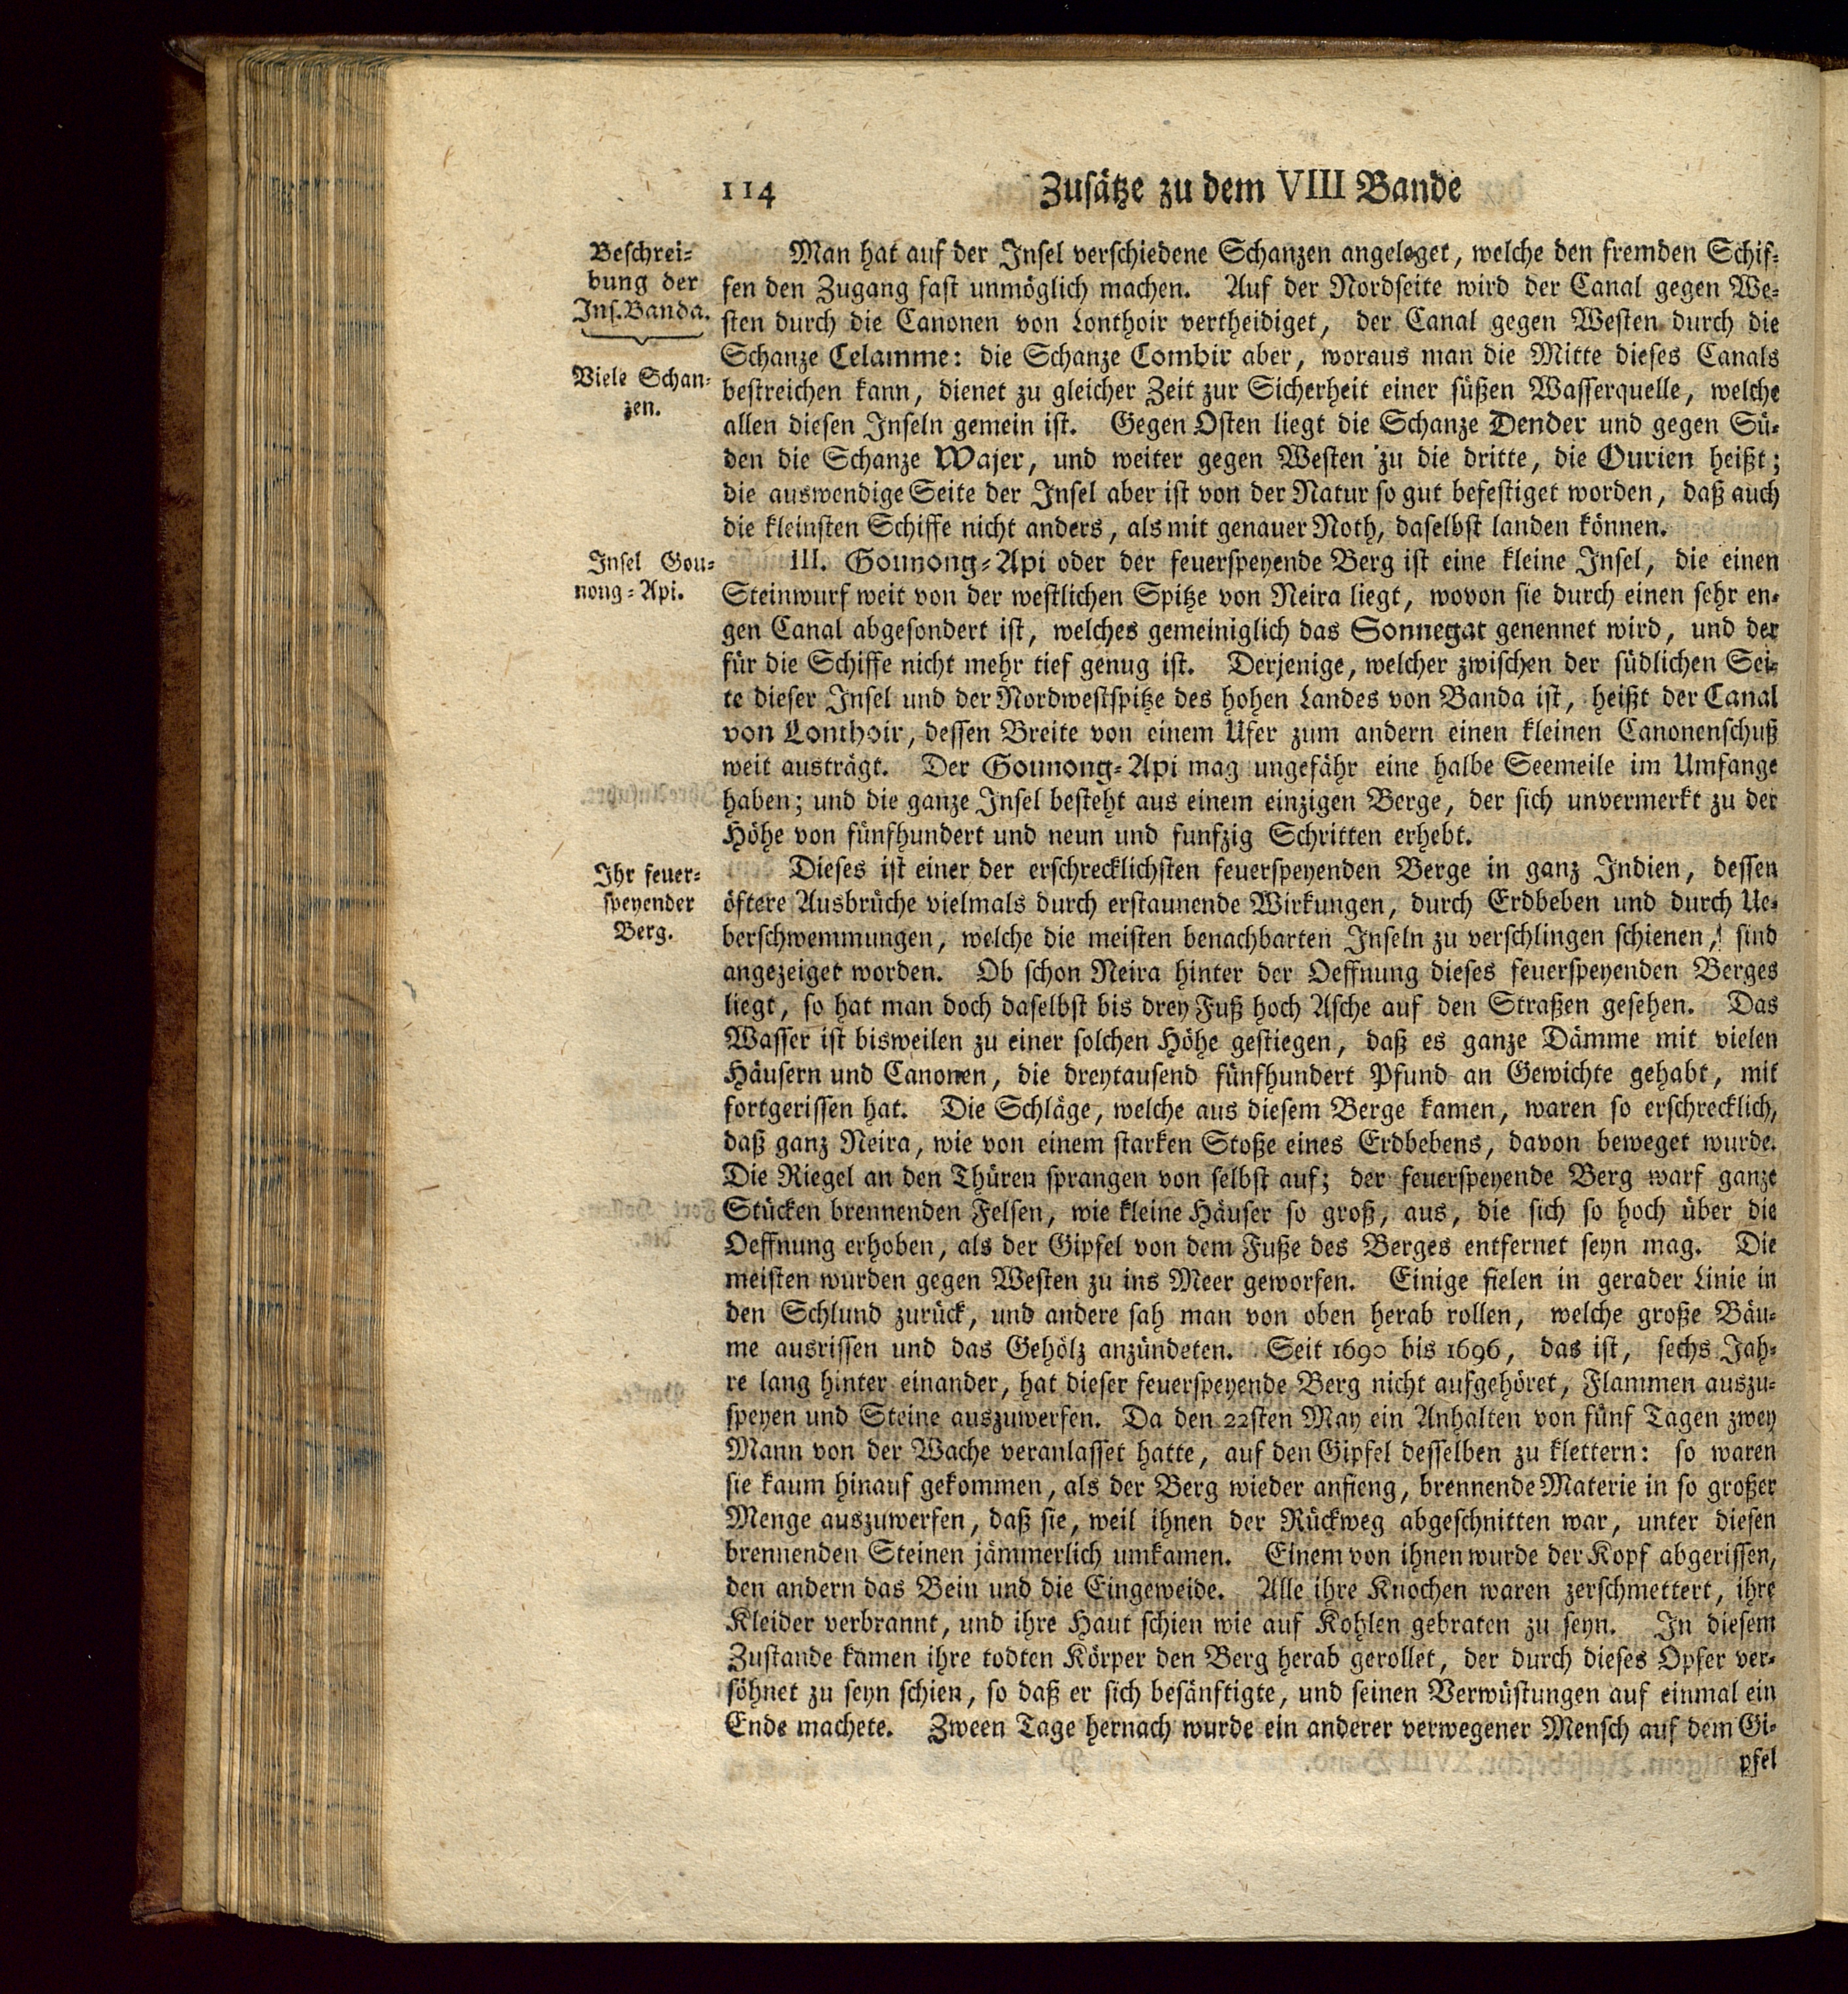 114 Zusätze zu dem VIII Bande
Beschrei-
bung der
Ins. Banda.
Viele Schan-
zen.
Man hat auf der Insel verschiedene Schanzen angeleget, welche den fremden Schif-
fen den Zugang fast unmöglich machen. Auf der Nordseite wird der Canal gegen We-
sten durch die Canonen von Lonthoir vertheidiget, der Canal gegen Westen durch die
Schanze Celamme: die Schanze Combir aber, woraus man die Mitte dieses Canals
bestreichen kann, dienet zu gleicher Zeit zur Sicherheit einer süßen Wasserquelle, welche
allen diesen Inseln gemein ist. Gegen Osten liegt die Schanze Dender und gegen Sü-
den die Schanze Wajer, und weiter gegen Westen zu die dritte, die Ourien heißt;
die auswendige Seite der Insel aber ist von der Natur so gut befestiget worden, daß auch
die kleinsten Schiffe nicht anders, als mit genauer Noth, daselbst landen können.
Insel Gou-
nong-Api.
III. Gounong-Api oder der feuerspeyende Berg ist eine kleine Insel, die einen
Steinwurf weit von der westlichen Spitze von Neira liegt, wovon sie durch einen sehr en-
gen Canal abgesondert ist, welches gemeiniglich das Sonnegat genennet wird, und der
für die Schiffe nicht mehr tief genug ist. Derjenige, welcher zwischen der südlichen Sei-
te dieser Insel und der Nordwestspitze des hohen Landes von Banda ist, heißt der Canal
von Lonthoir, dessen Breite von einem Ufer zum andern einen kleinen Canonenschuß
weit austrägt. Der Gounong-Api mag ungefähr eine halbe Seemeile im Umfange
haben; und die ganze Insel besteht aus einem einzigen Berge, der sich unvermerkt zu der
Höhe von fünfhundert und neun und funfzig Schritten erhebt.
Ihr feuer-
speyender
Berg.
Dieses ist einer der erschrecklichsten feuerspeyenden Berge in ganz Indien, dessen
öftere Ausbrüche vielmals durch erstaunende Wirkungen, durch Erdbeben und durch Ue-
berschwemmungen, welche die meisten benachbarten Inseln zu verschlingen schienen, sind
angezeiget worden. Ob schon Neira hinter der Oeffnung dieses feuerspeyenden Berges
liegt, so hat man doch daselbst bis drey Fuß hoch Asche auf den Straßen gesehen. Das
Wasser ist bisweilen zu einer solchen Höhe gestiegen, daß es ganze Dämme mit vielen
Häusern und Canonen, die dreytausend fünfhundert Pfund an Gewichte gehabt, mit
fortgerissen hat. Die Schläge, welche aus diesem Berge kamen, waren so erschrecklich,
daß ganz Neira, wie von einem starken Stoße eines Erdbebens, davon beweget wurde.
Die Riegel an den Thüren sprangen von selbst auf; der feuerspeyende Berg warf ganze
Stücken brennenden Felsen, wie kleine Häuser so groß, aus, die sich so hoch über die
Oeffnung erhoben, als der Gipfel von dem Fuße des Berges entfernet seyn mag. Die
meisten wurden gegen Westen zu ins Meer geworfen. Einige fielen in gerader Linie in
den Schlund zurück, und andere sah man von oben herab rollen, welche große Bäu-
me ausrissen und das Gehölz anzündeten. Seit 1690 bis 1696, das ist, sechs Jah-
re lang hinter einander, hat dieser feuerspeyende Berg nicht aufgehöret, Flammen auszu-
speyen und Steine auszuwerfen. Da den 22sten May ein Anhalten von fünf Tagen zwey
Mann von der Wache veranlasset hatte, auf den Gipfel desselben zu klettern: so waren
sie kaum hinauf gekommen, als der Berg wieder anfieng, brennende Materie in so großer
Menge auszuwerfen, daß sie, weil ihnen der Rückweg abgeschnitten war, unter diesen
brennenden Steinen jämmerlich umkamen. Einem von ihnen wurde der Kopf abgerissen,
den andern das Bein und die Eingeweide. Alle ihre Knochen waren zerschmettert, ihre
Kleider verbrannt, und ihre Haut schien wie auf Kohlen gebraten zu seyn. In diesem
Zustande kamen ihre todten Körper den Berg herab gerollet, der durch dieses Opfer ver-
söhnet zu seyn schien, so daß er sich besänftigte, und seinen Verwüstungen auf einmal ein
Ende machete. Zween Tage hernach wurde ein anderer verwegener Mensch auf dem Gi-
pfel